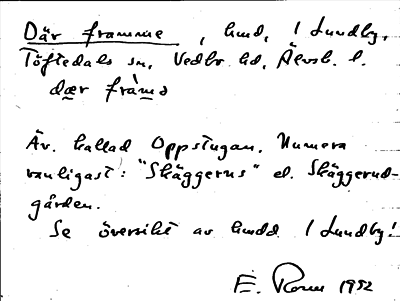 Där framme, hmd, 1 Lundby,
Töftedals sn, Vedbo hd, Älvsb. l.
dær fràm:ə
Äv. kallad Oppstugan. Numera
vanligast: "Skäggerus" el. Skäggerud-
gården.
Se översikt av hmdd 1 Lundby!
E. Rosen 1952